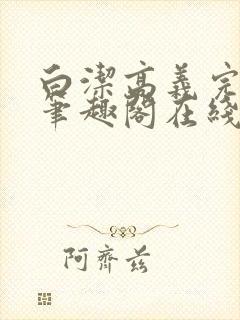 白潔高義完
筆趣閣在綫
阿齊茲